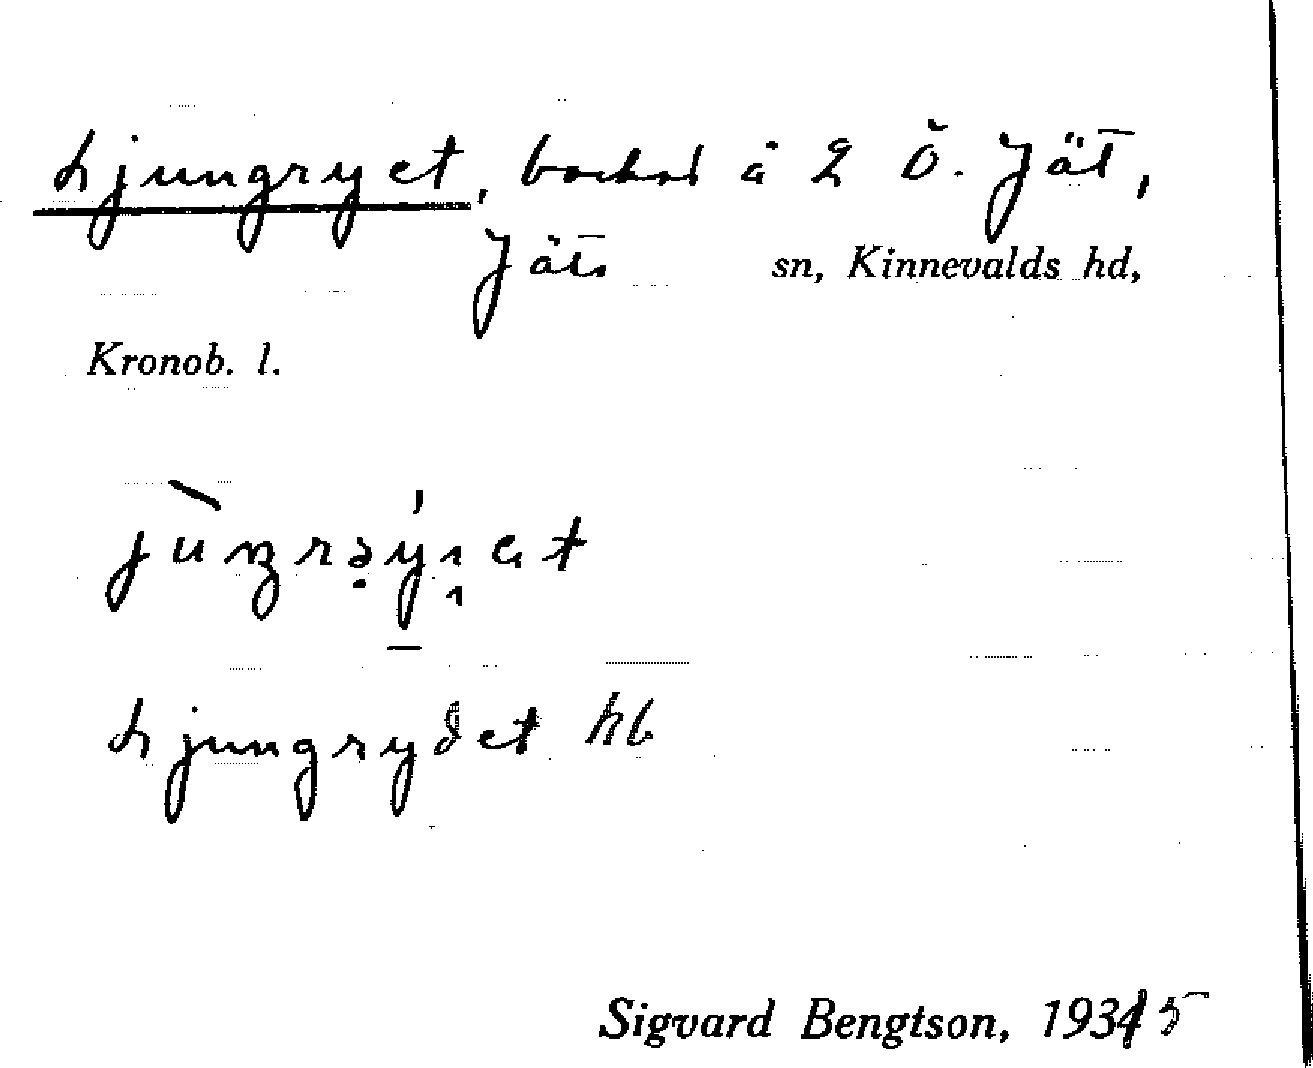 Ljungryet, bockad å 2 Ö. Jät,
Jäts sn, Kinnevalds hd,
Kronob. l.
Ljungrydet hb
Sigvard Bengtson, 1935